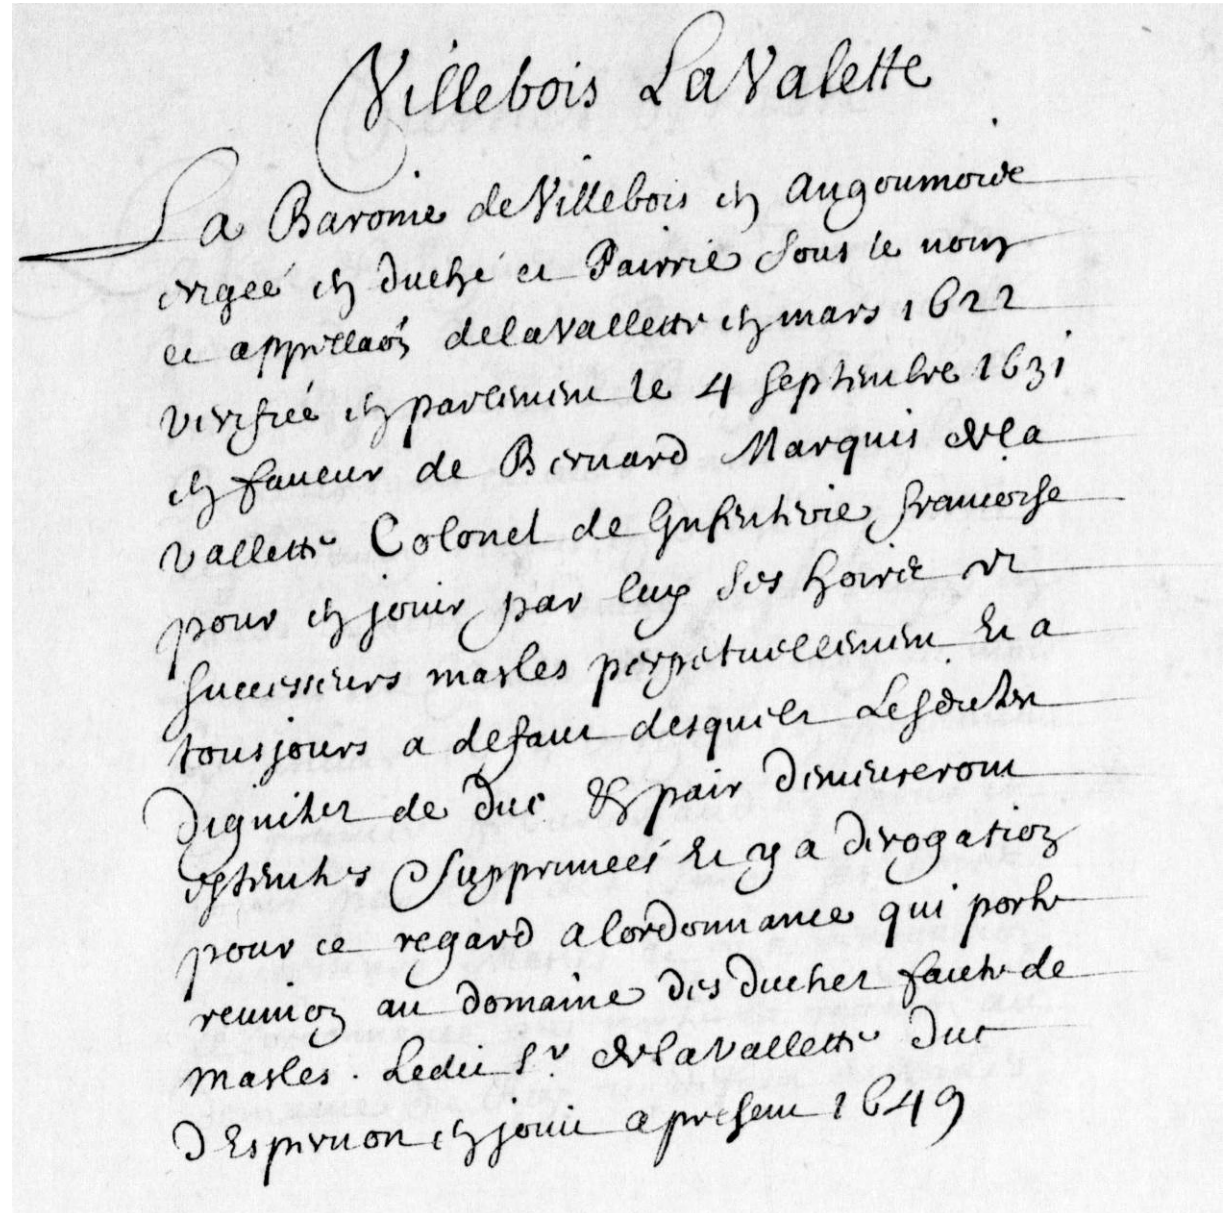 Villebois La Valette
La Baronie de Villebois en Angoumois
erigée en Duché et Pairrie sous le nom
et appellaon de la Vallette en mars 1622
verifiée en parlement le 4 septembre 1631
en faveur de Bernard Marquis de la
Vallette Colonel de Gnfenterie francoise
pour en jouir par luy ses hoirs et
successeurs masles perpetuellement et a
tousjours a defaut desquels Lesdictes
Dignitez de Duc & pair demeureront
esteintes supprimees et y a derogation
pour ce regard a lordonnance qui porte
reunion au domaine des Duchez faute de
masles. Ledit Sr. de la Vallette Duc
DEspernon en jouit a present 1649